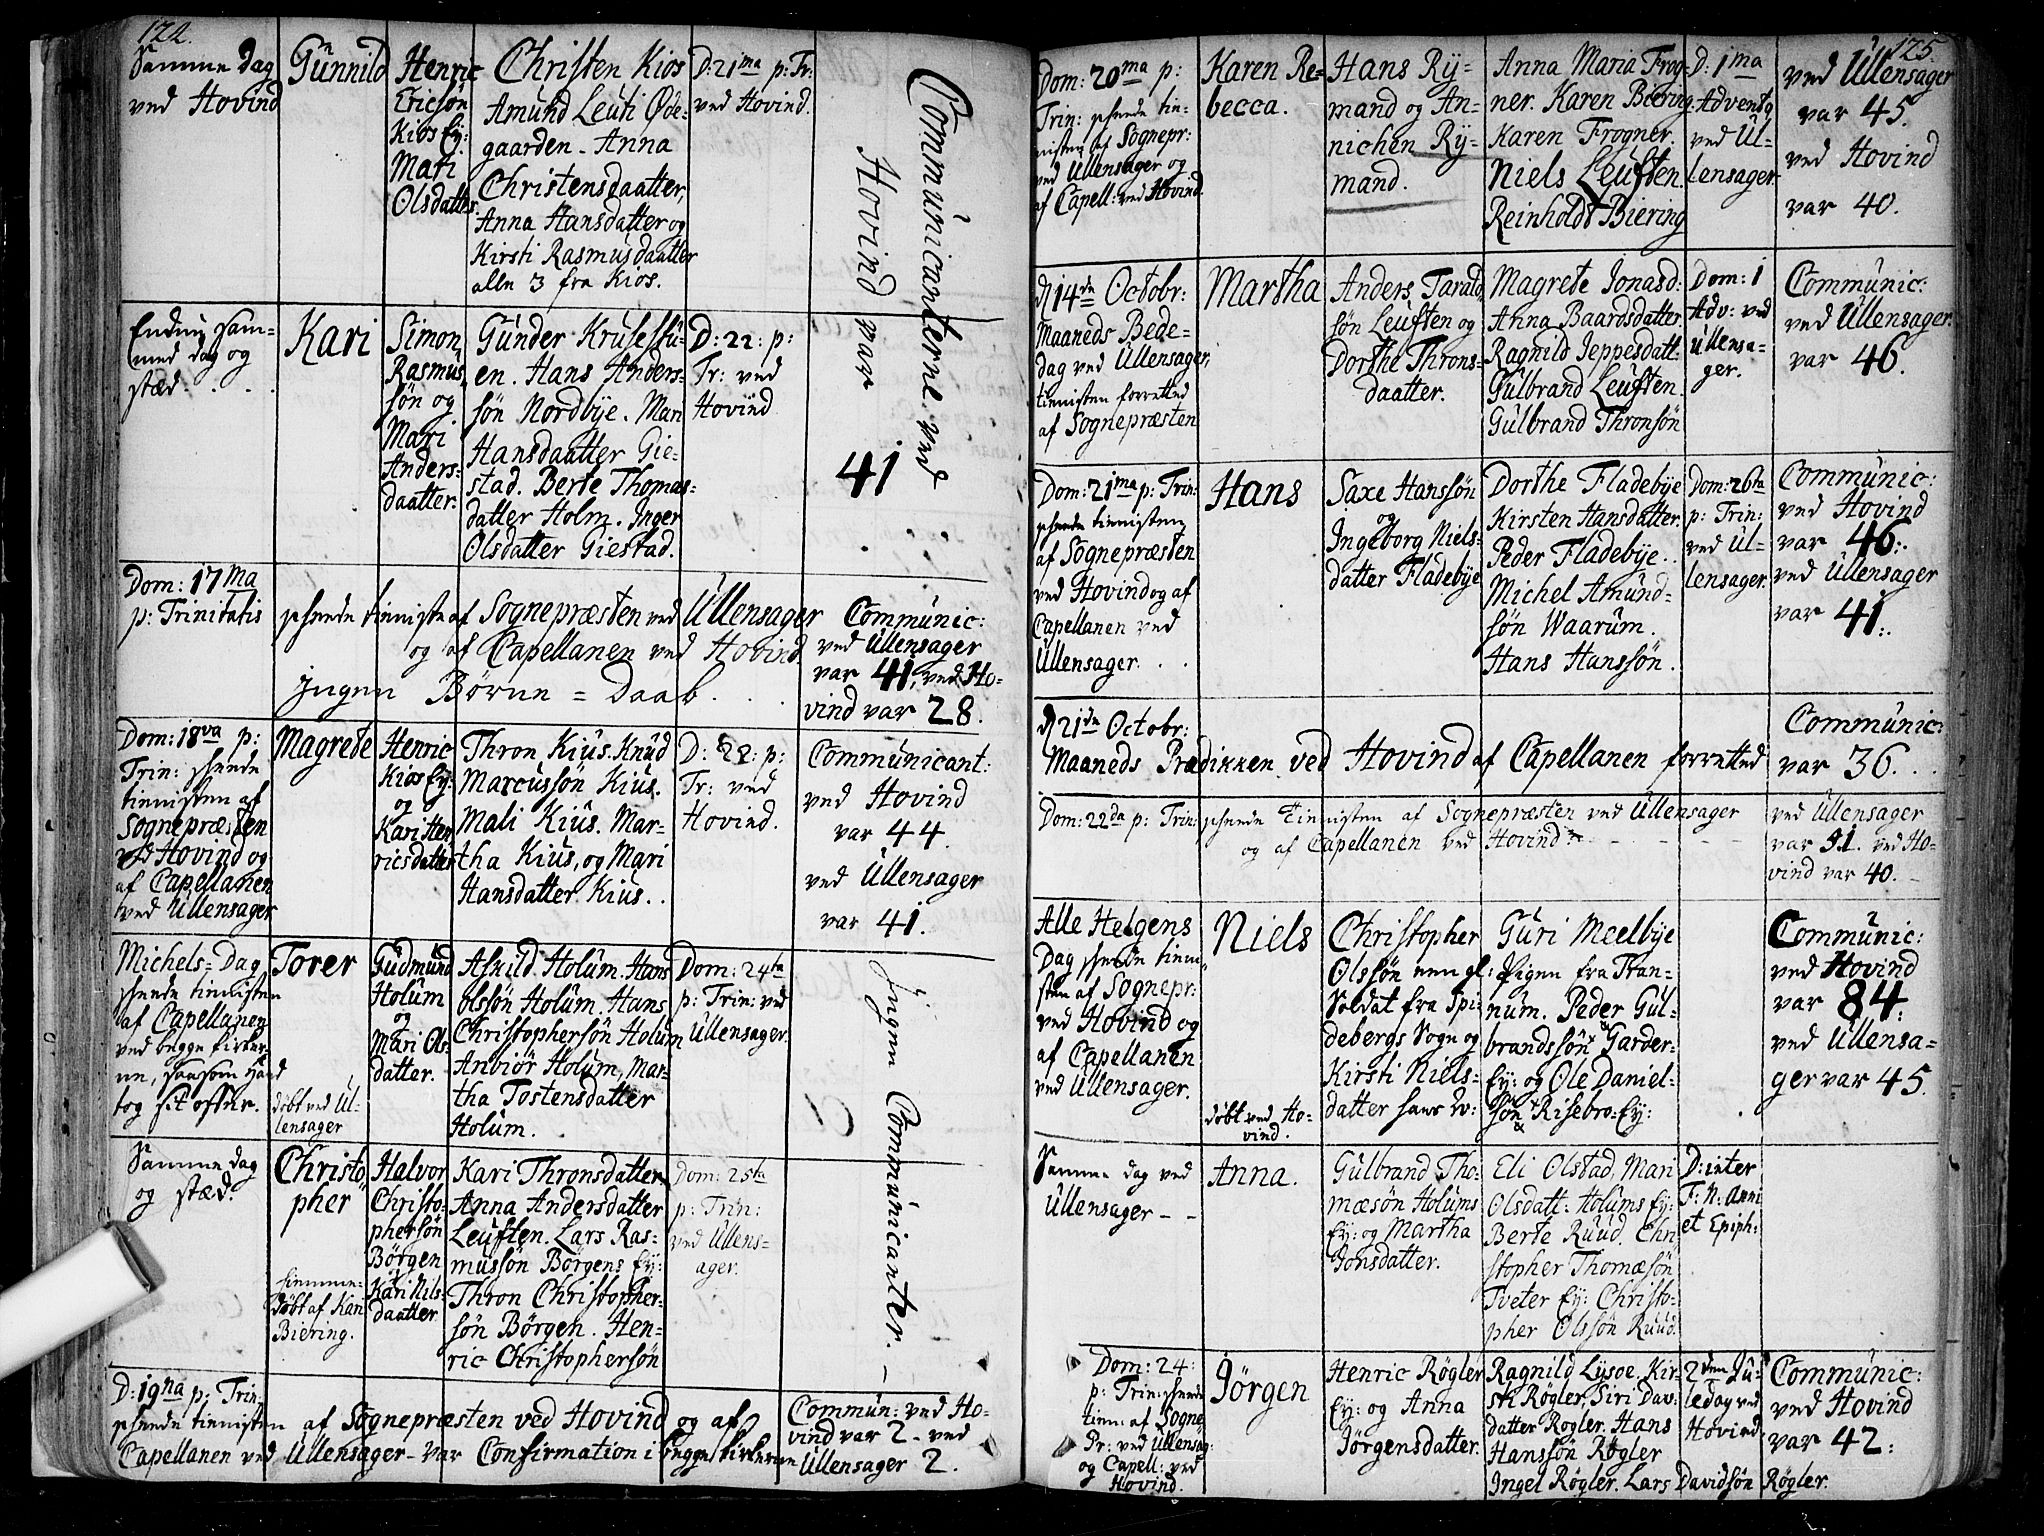 122.
Samme Dag
ved Hovind
Gunnild
Henric
Ericsön
Kios Ey:
Mari
Olsdatter.
Christen Kios
Amund Leuti Øde-
gaarden. Anna
Christensdaatter,
Anna Hansdatter og
Kirsti Rasmusdaatter
alle 3 fra Kios.
D: 21ma p: Tr:
ved Hovind.
Communicanterne ved
Hovind var
41
Endnu sam-
med dag og
stæd.
Kari
Simon
Rasmus
sön og
Mari
Anders-
daatter.
Gunder Krusesstu-
en. Hans Anders-
sön Nordbye. Mari
Hansdaatter Gie-
stad. Berte Thomas-
datter Holm. Inger
Olsdatter Giestad.
D: 22: p:
Tr: ved
Hovind
Dom: 17ma
p: Trinitatis
skeede tienniste af Sognepræsten ved Ullensager
og af Capellanen ved Hovind.
Ingen Børne = Daab.
Communic:
ved Ullensager
var 41, ved Ho-
vind var 28.
Dom: 18va p:
Trin: skeede
tiennisten af
Sognepræsten
ved Hovind og
af Capellanen
ved Ullensager
Magrete
Henric
Kios Ey:
og
Kari Hen
ricsdatter
Thron Kius. Knud
Marcussön Kius.
Mali Kius. Mar-
tha Kius, og Mari
Hansdatter Kius.
D: 22: p:
Tr: ved
Hovind.
Communicant:
ved Hovind
var 44
ved Ullensager
var 41.
Michels-Dag
skeede tiennisten
af Capellanen
ved begge kirker-
ne, saasom Hand
tog sit offer.
Torer
döbt ved Ul-
lensager
Gudmund
Holum
og
Mari Ols
datter.
Askild Holum. Hans
olssön Holum. Hans
Christophersön Holum
Anbiör Holum, Mar-
tha Tostensdatter
Holum.
Dom: 24ta
p: Trin: ved
Ullensager.
Ingen Communicanter.
Samme dag
og stæd.
Christo-
pher
hiemme-
döbt af Kari
Biering.
Halvor
Christo-
phersön
Börgen
Kari Nils-
daatter
Kari Thronsdatter
Anna Andersdatter
Leuften. Lars Ras-
mussön Börgens Ey:
Thron Christopher-
sön Börgen. Hen-
ric Christophersön
Dom: 25ta
p: Trin:
ved Ullens-
ager.
D: 19na p: Trin:
skeede tiennisten af Sognepræsten ved Hovind og af
Capellanen ved Ullensager - var Confirmation i begge kirkerne
Commun: ved Ho-
vind var 2 - ved
Ullensager 2.
125.
Dom: 20ma p:
Trin: skeede tie-
nisten af Sognepr:
ved Ullensager og
af Capell: ved Hovind
Karen Re-
becca.
Hans Ry-
mand og An-
nichen Ry-
mand.
Anna Maria Frog-
ner. Karen Biering.
Karen Frogner.
Niels Leuften.
Reinholdt Biering
D: 1ma
Advent9
ved Ul-
lensager.
ved Ullensager
var 45.
ved Hovind
var 40.
d 14de Octobr:
Maaneds Bede-
dag ved Ullensager,
tiennisten forretted
af Sognepræsten
Martha
Anders Tarald
sön Leuften og
Dorthe Throns-
daatter.
Magrete Jonasd:
Anna Baardsdatter.
Ragnild Jeppesdatt:
Gulbrand Leuften.
Gulbrand Thronsön
Dom: 1
Adv: ved
Ullensa-
ger.
Communic:
ved Ullensager.
var 46.
Dom: 21ma p: Trin:
skeede tiennisten
af Sognepræsten
ved Hovind og af
Capellanen ved
Ullensager.
Hans
Saxe Hanssön
og
Ingeborg Niels-
datter Fladebye
Dorthe Fladebye
Kirsten Hansdatter.
Peder Fladebye.
Michel Amund-
sön Waarum.
Hans Hanssön.
Dom: 26ta
p: Trin:
ved Ul-
lensager.
Communic:
ved Hovind
var 46.
ved Ullensager
var 41.
d 21de Octobr:
Maaneds Prædikken ved Hovind af Capellanen forretted
Communic:
var 36.
Dom: 22da p: Trin: skeede Tiennisten af Sognepræsten ved Ullensager
og af Capellanen ved Hovind
ved Ullensager
var 91. ved Ho-
vind var 40.
Alle Helgens
Dag skeede tienni-
sten af Sognepr:
ved Hovind og
af Capellanen
ved Ullensager.
Niels
döbt ved Ho-
vind.
Christopher
Olssön een gl:
Soldat fra Spi-
debergs Sogn og
Kirsti Niels-
datter
Guri Meelbye
Pigen fra Tran-
num. Peder Gul-
brandssön Garder-
Ey: og Ole Daniel-
sön Risebro: Ey:
Communic:
ved Hovind
var 84.
ved Ullensa-
ger var 45.
Samme dag ved
Ullensager - -
Anna.
Gulbrand Tho-
mæsön Holums
Ey: og Martha
Jonsdatter.
Eli Olstad, Mari
Olsdatt: Holums Ey:
Berte Ruud. Chri
stopher Thomæsön
Tveter Ey: Christo-
pher Olssön Ruud.
D: inter
F: N: Anni
et Epiph:
Dom: 24:
p: Trin: skeede
tienn: af Sogne
Pr: ved Ullensag:
og Capell: ved
Hovind.
Jörgen
Henric Røgler
Ey: og Anna
Jörgensdatter.
Ragnild Lysoe. Kir-
sti Røgler, Siri Dav-
datter Røgler. Hans
Hanssön Røgler
Ingel Røgler. Lars Davidsön Røgler.
2den Ju-
ledag ved
Hovind
Communic:
ved Hovind
var 42: